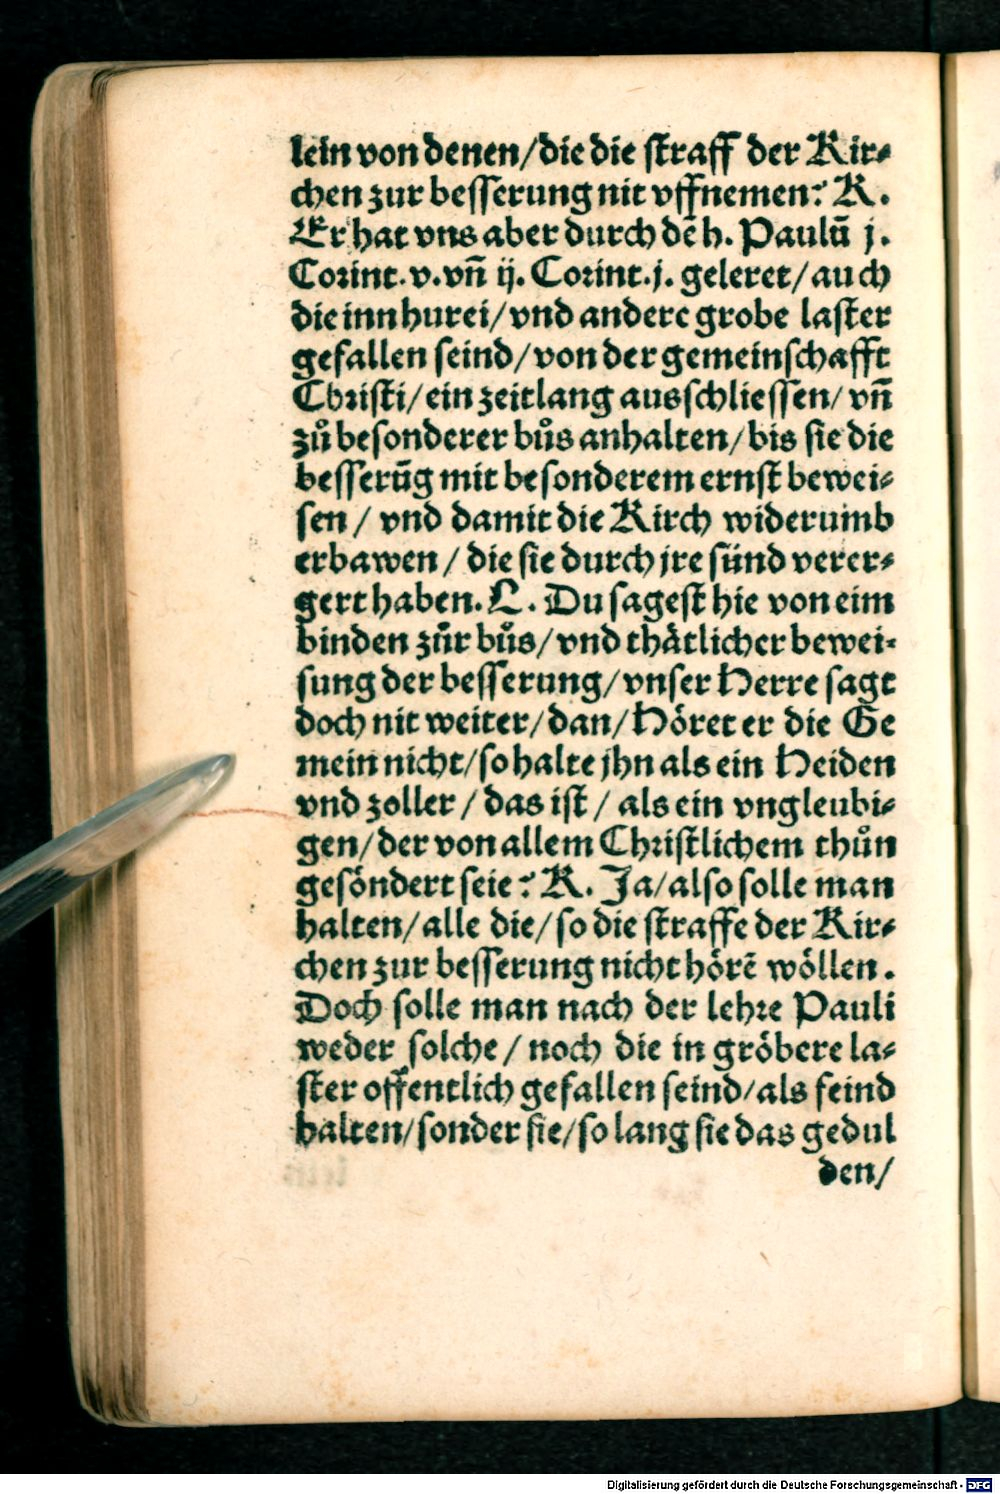 lein von denen/die die straff der Kir⸗
chen zur besserung nit vffnemen? K.
Er hat vns aber durch dē h. Paulū j.
Corint. v. vñ ij. Corint. j. geleret/auch
die inn hurei/vnd andere grobe laster
gefallen seind/von der gemeinschafft
Christi/ein zeitlang ausschliessen/vñ
zů besonderer bůs anhalten/bis sie die
besserūg mit besonderem ernst bewei⸗
sen / vnd damit die Kirch widerumb
erbawen / die sie durch jre sünd verer⸗
gert haben. L. Du sagest hie von eim
binden zůr bůs/vnd thätlicher bewei⸗
sung der besserung/vnser Herre sagt
doch nit weiter/dan/Höret er die Ge
mein nicht/so halte jhn als ein Heiden
vnd zoller / das ist / als ein vngleubi⸗
gen/der von allem Christlichem thůn
gesöndert seie? K. Ja/also solle man
halten/alle die/so die straffe der Kir⸗
chen zur besserung nicht hörē wöllen.
Doch solle man nach der lehre Pauli
weder solche / noch die in gröbere la⸗
ster offentlich gefallen seind/als feind
halten/sonder sie/so lang sie das gedul
den/
Digitalisierung gefördert durch die Deutsche Forschungsgemeinschaft - DFG